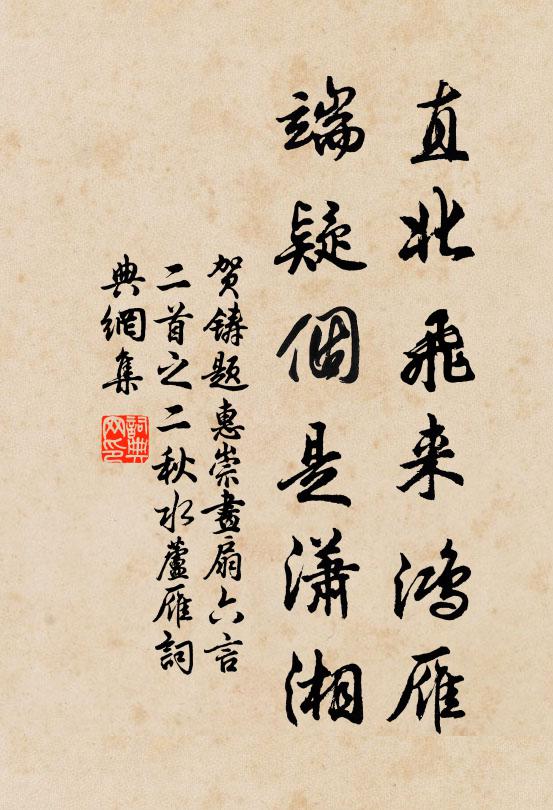 直北飛来鴻雁
端疑個是瀟湘
贺鑄題惠崇畫扇六言
二首之二秋水蘆雁詞
典網集
詞典网印